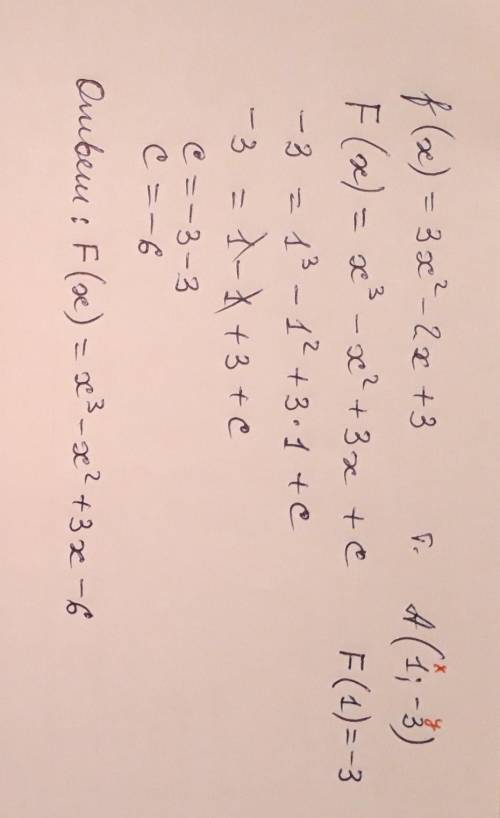 f(x) = 3x² - 2x + 3 т. A(1; -3) x y
F(x) = x³ - x² + 3x + c F(1) = -3
-3 = 1³ - 1² + 3·1 + c
-3 = 1 - 1 + 3 + c
c = -3 - 3
c = -6
Ответ: F(x) = x³ - x² + 3x - 6